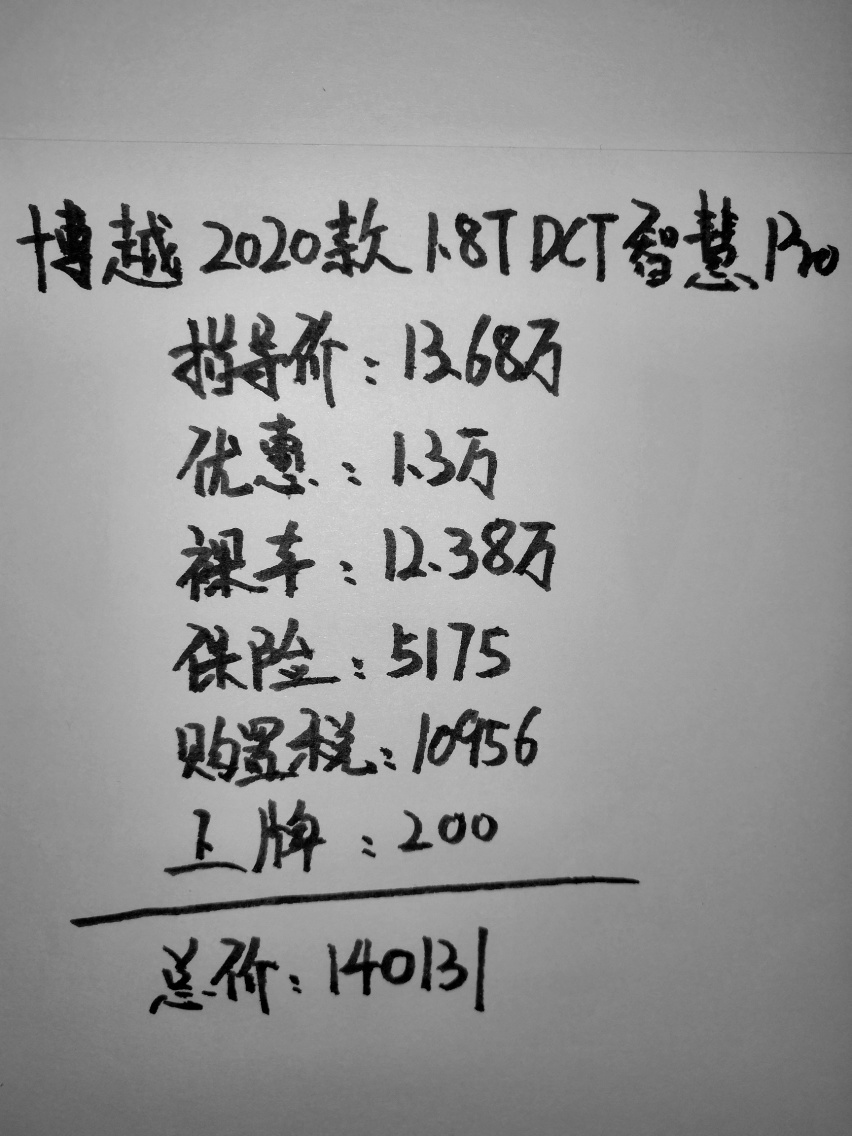 博越 2020款 1.8T DCT 智慧Pro
指导价：13.68万
优惠：1.3万
裸车：12.38万
保险：5175
购置税：10956
上牌：200
总价：140131